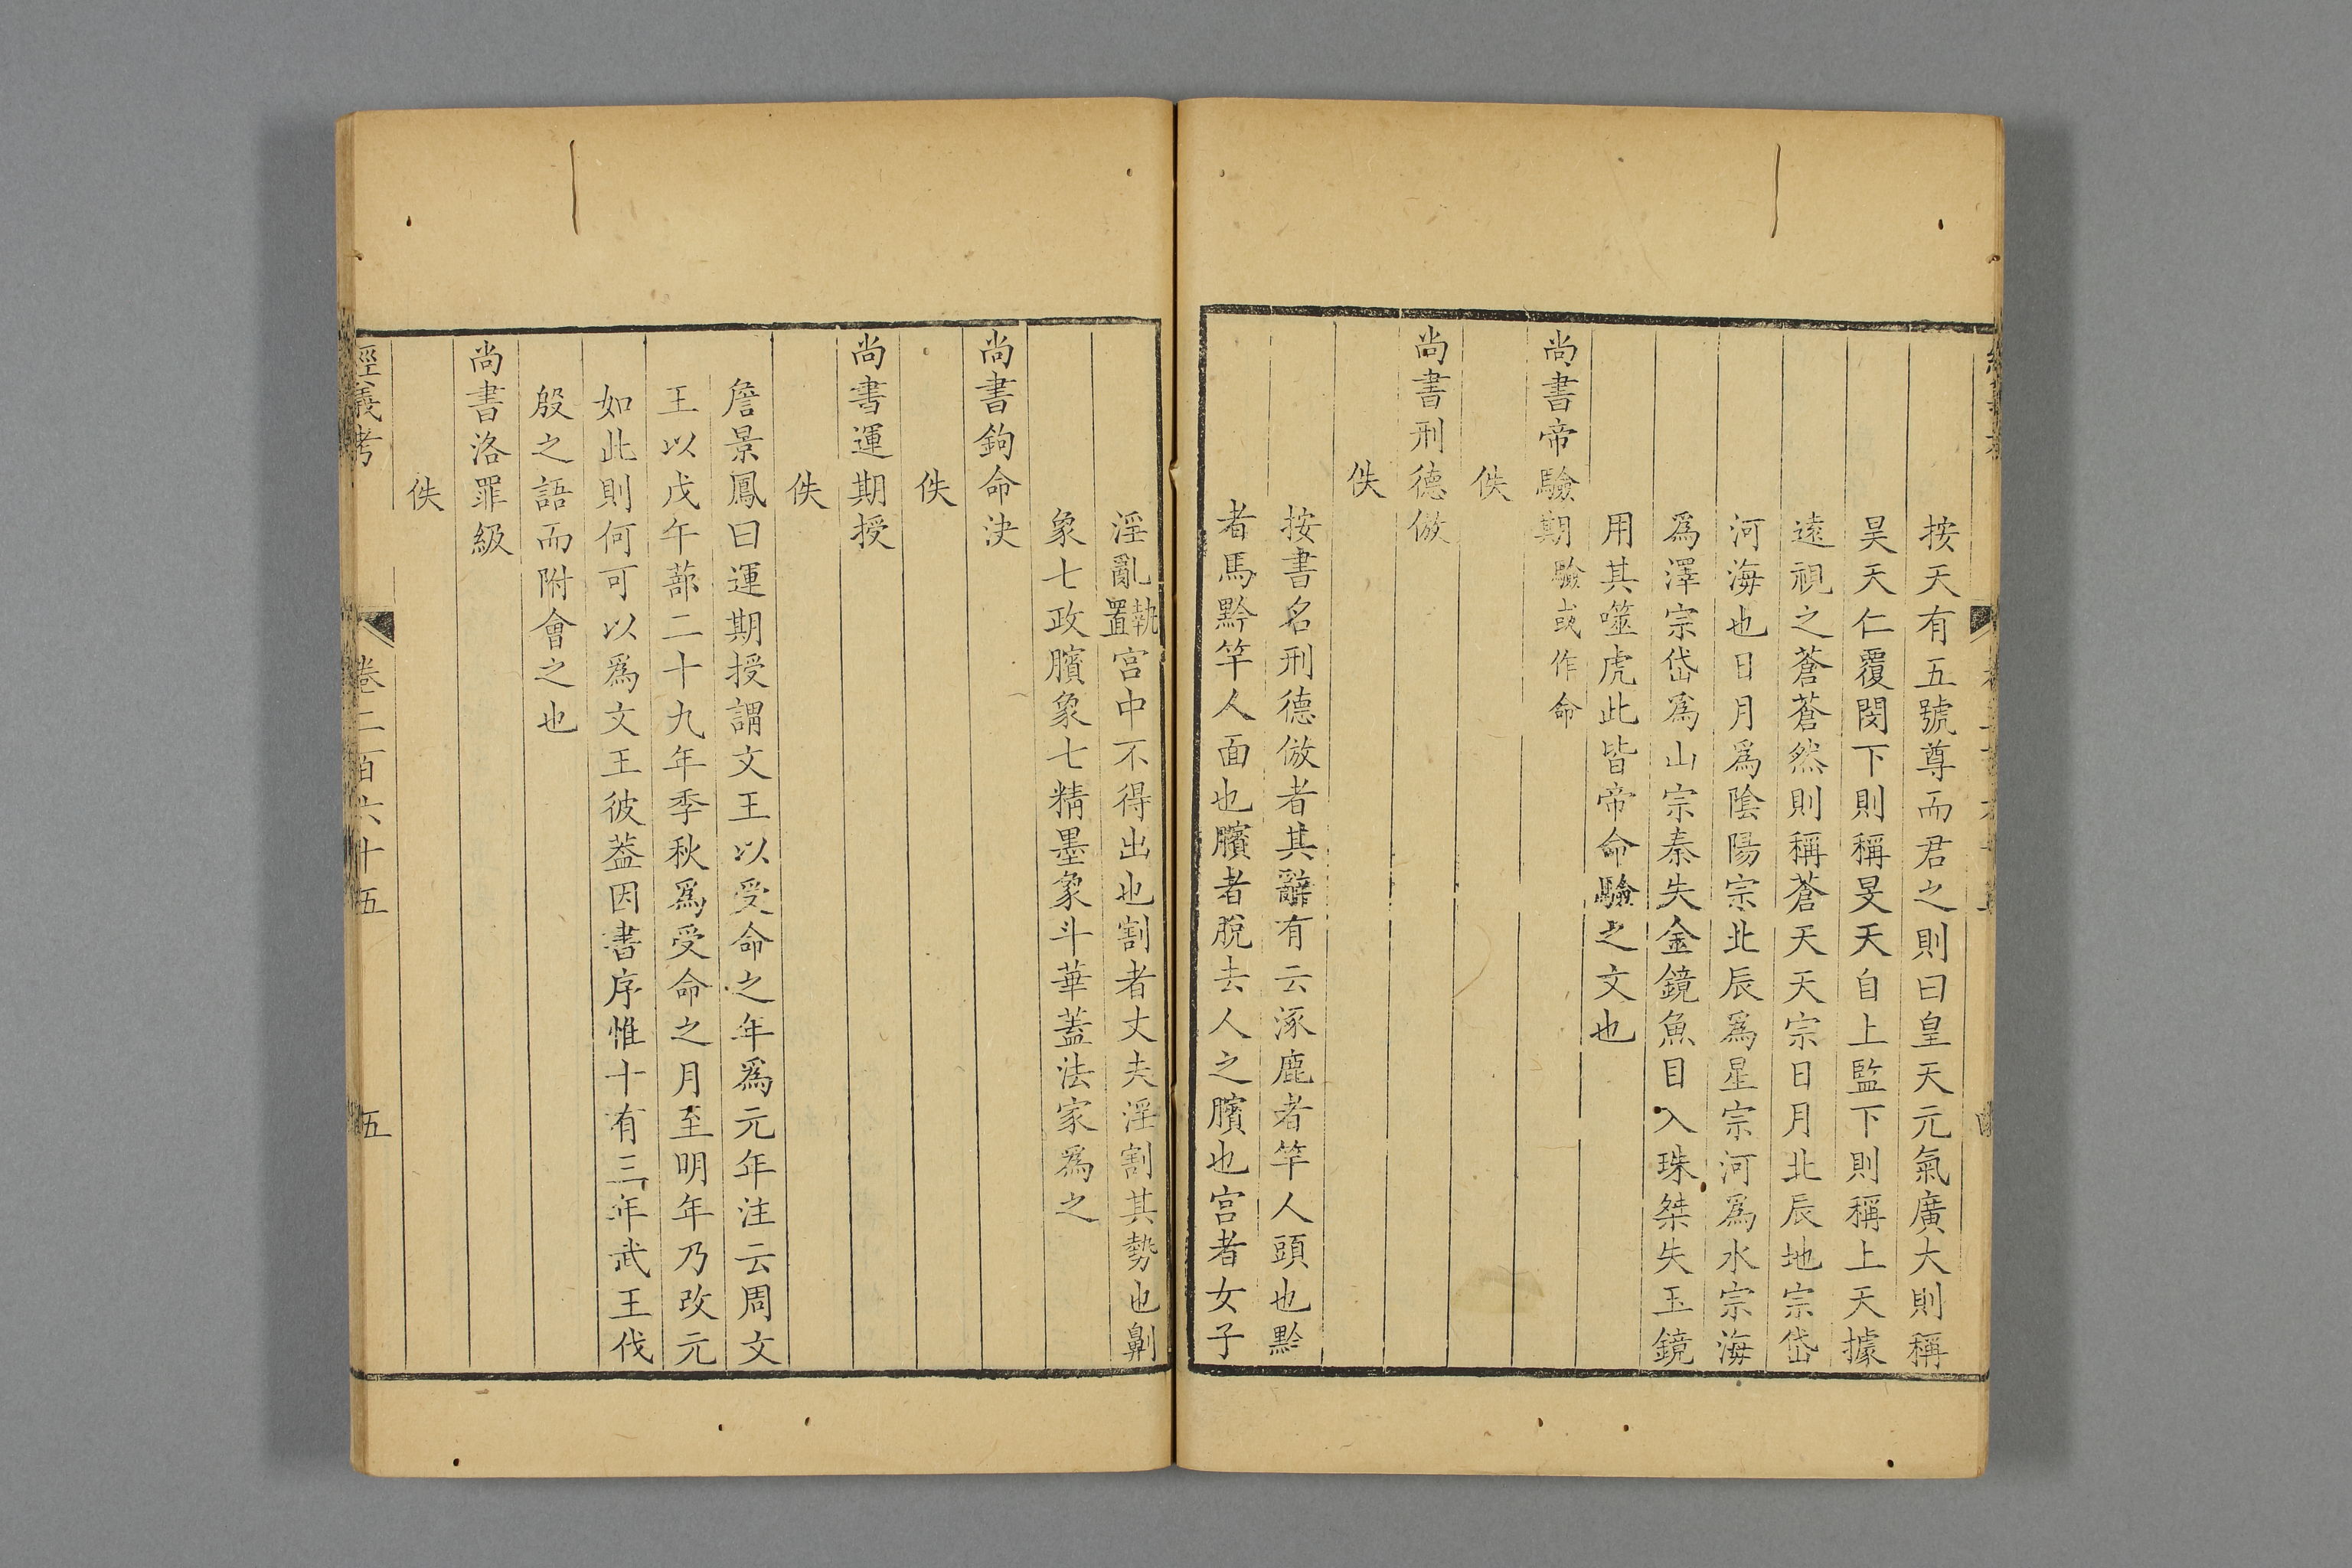 按天有五號尊而君之則曰皇天元氣廣大則稱
昊天仁覆閔下則稱旻天自上監下則稱上天據
遠視之蒼蒼然則稱蒼天天宗日月北辰地宗岱
河海也日月爲陰陽宗北辰爲星宗河爲水宗海
爲澤宗岱爲山宗秦失金鏡魚目入珠桀失玉鏡
用其噬虎此皆帝命驗之文也
尚書帝驗期驗或作命
佚
尚書刑德倣
佚
按書名刑德倣者其辭有云涿鹿者竿人頭也黥
者馬黥竿人面也臏者脫去人之臏也宮者女子
淫亂執置宮中不得出也割者丈夫淫割其勢也劓
象七政臏象七精墨象斗華蓋法家爲之
尚書鉤命決
佚
尚書運期授
佚
詹景鳳曰運期授謂文王以受命之年爲元年注云周文
王以戊午蔀二十九年季秋爲受命之月至明年乃改元
如此則何可以爲文王彼葢因書序惟十有三年武王伐
殷之語而附會之也
尚書洛罪級
佚
經義考
卷二百六十五
五